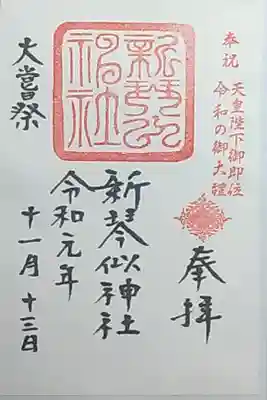 奉祝
天皇陛下御即位
令和の御大礼
奉拝
新琴似神社
新琴似神社
令和元年
十一月十三日
大嘗祭